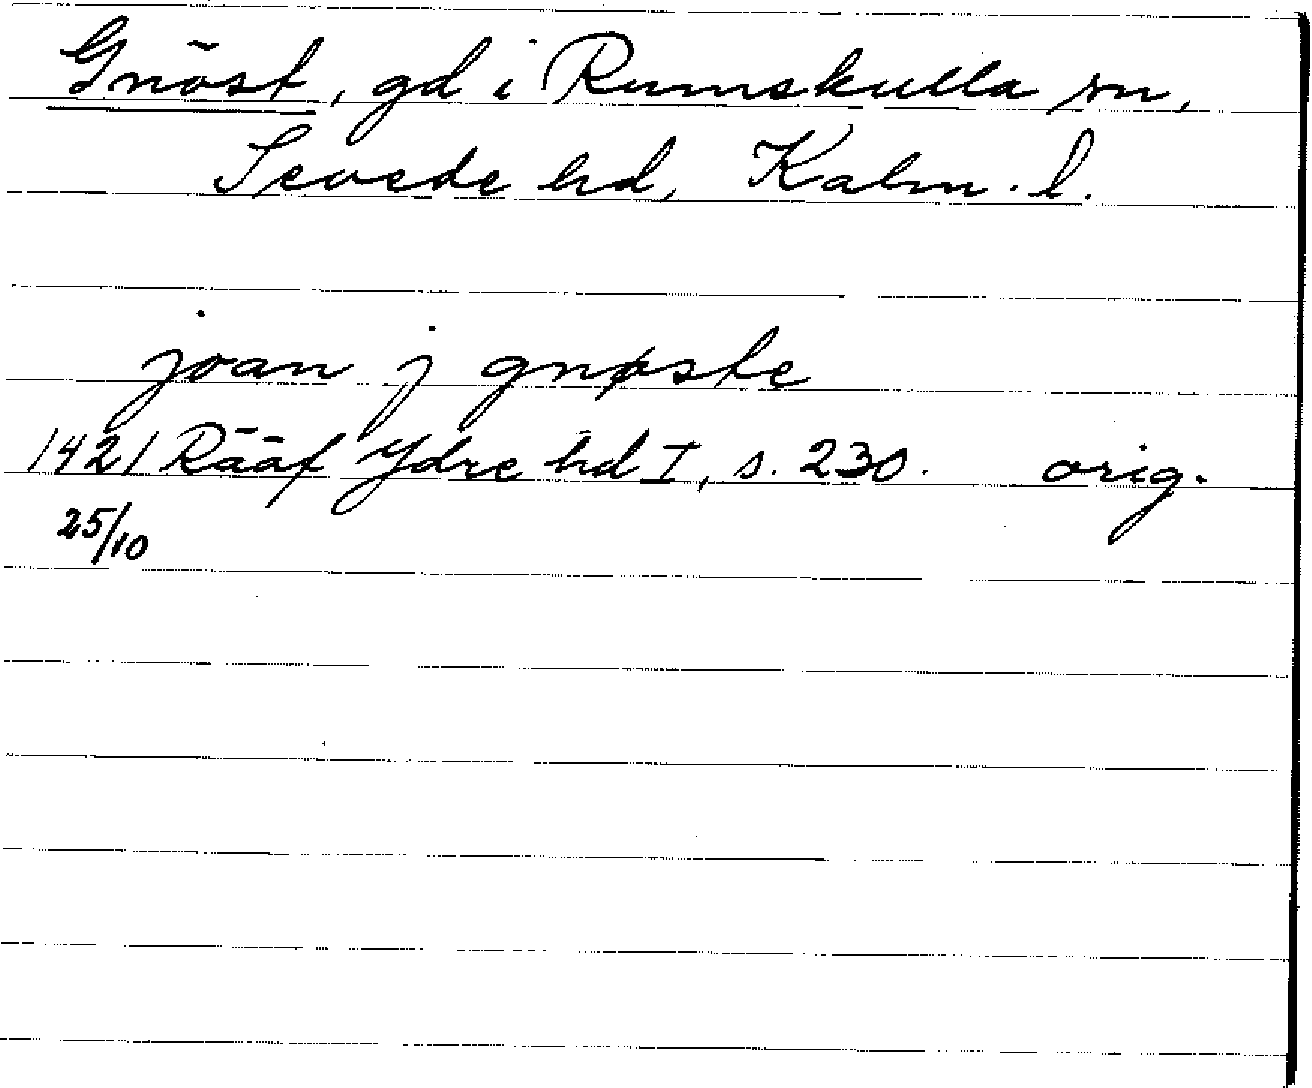 Gnöst, gd i Rumskulla sn,
Sevede hd, Kalm. l.
joan j gnøste
1421 Rääf Ydre hd I, s. 230. orig.
25/10